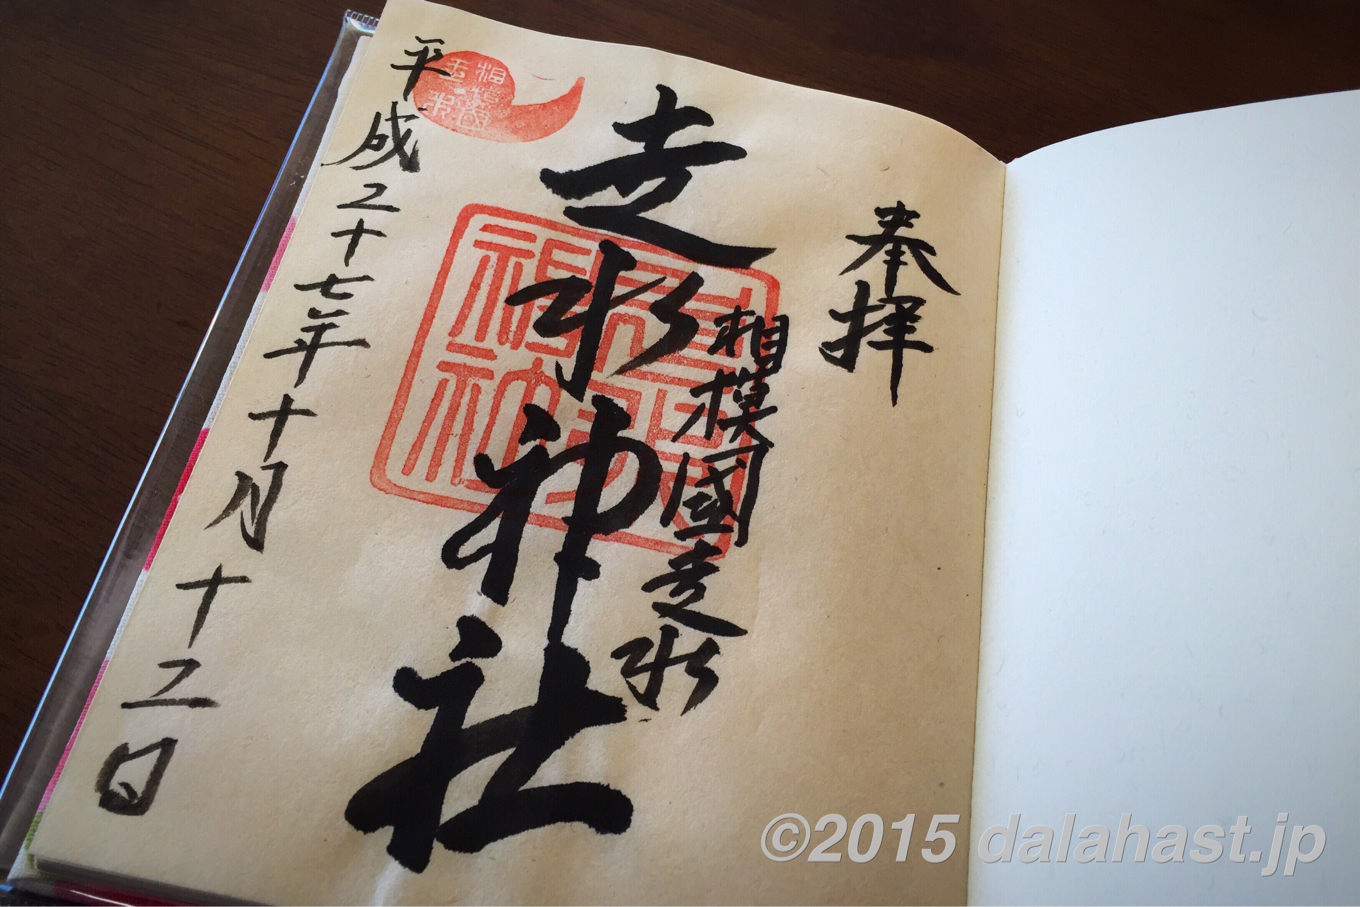 奉拝
相模國走水
走水神社
平成二十七年十月十二日
©2015 dalahast.jp